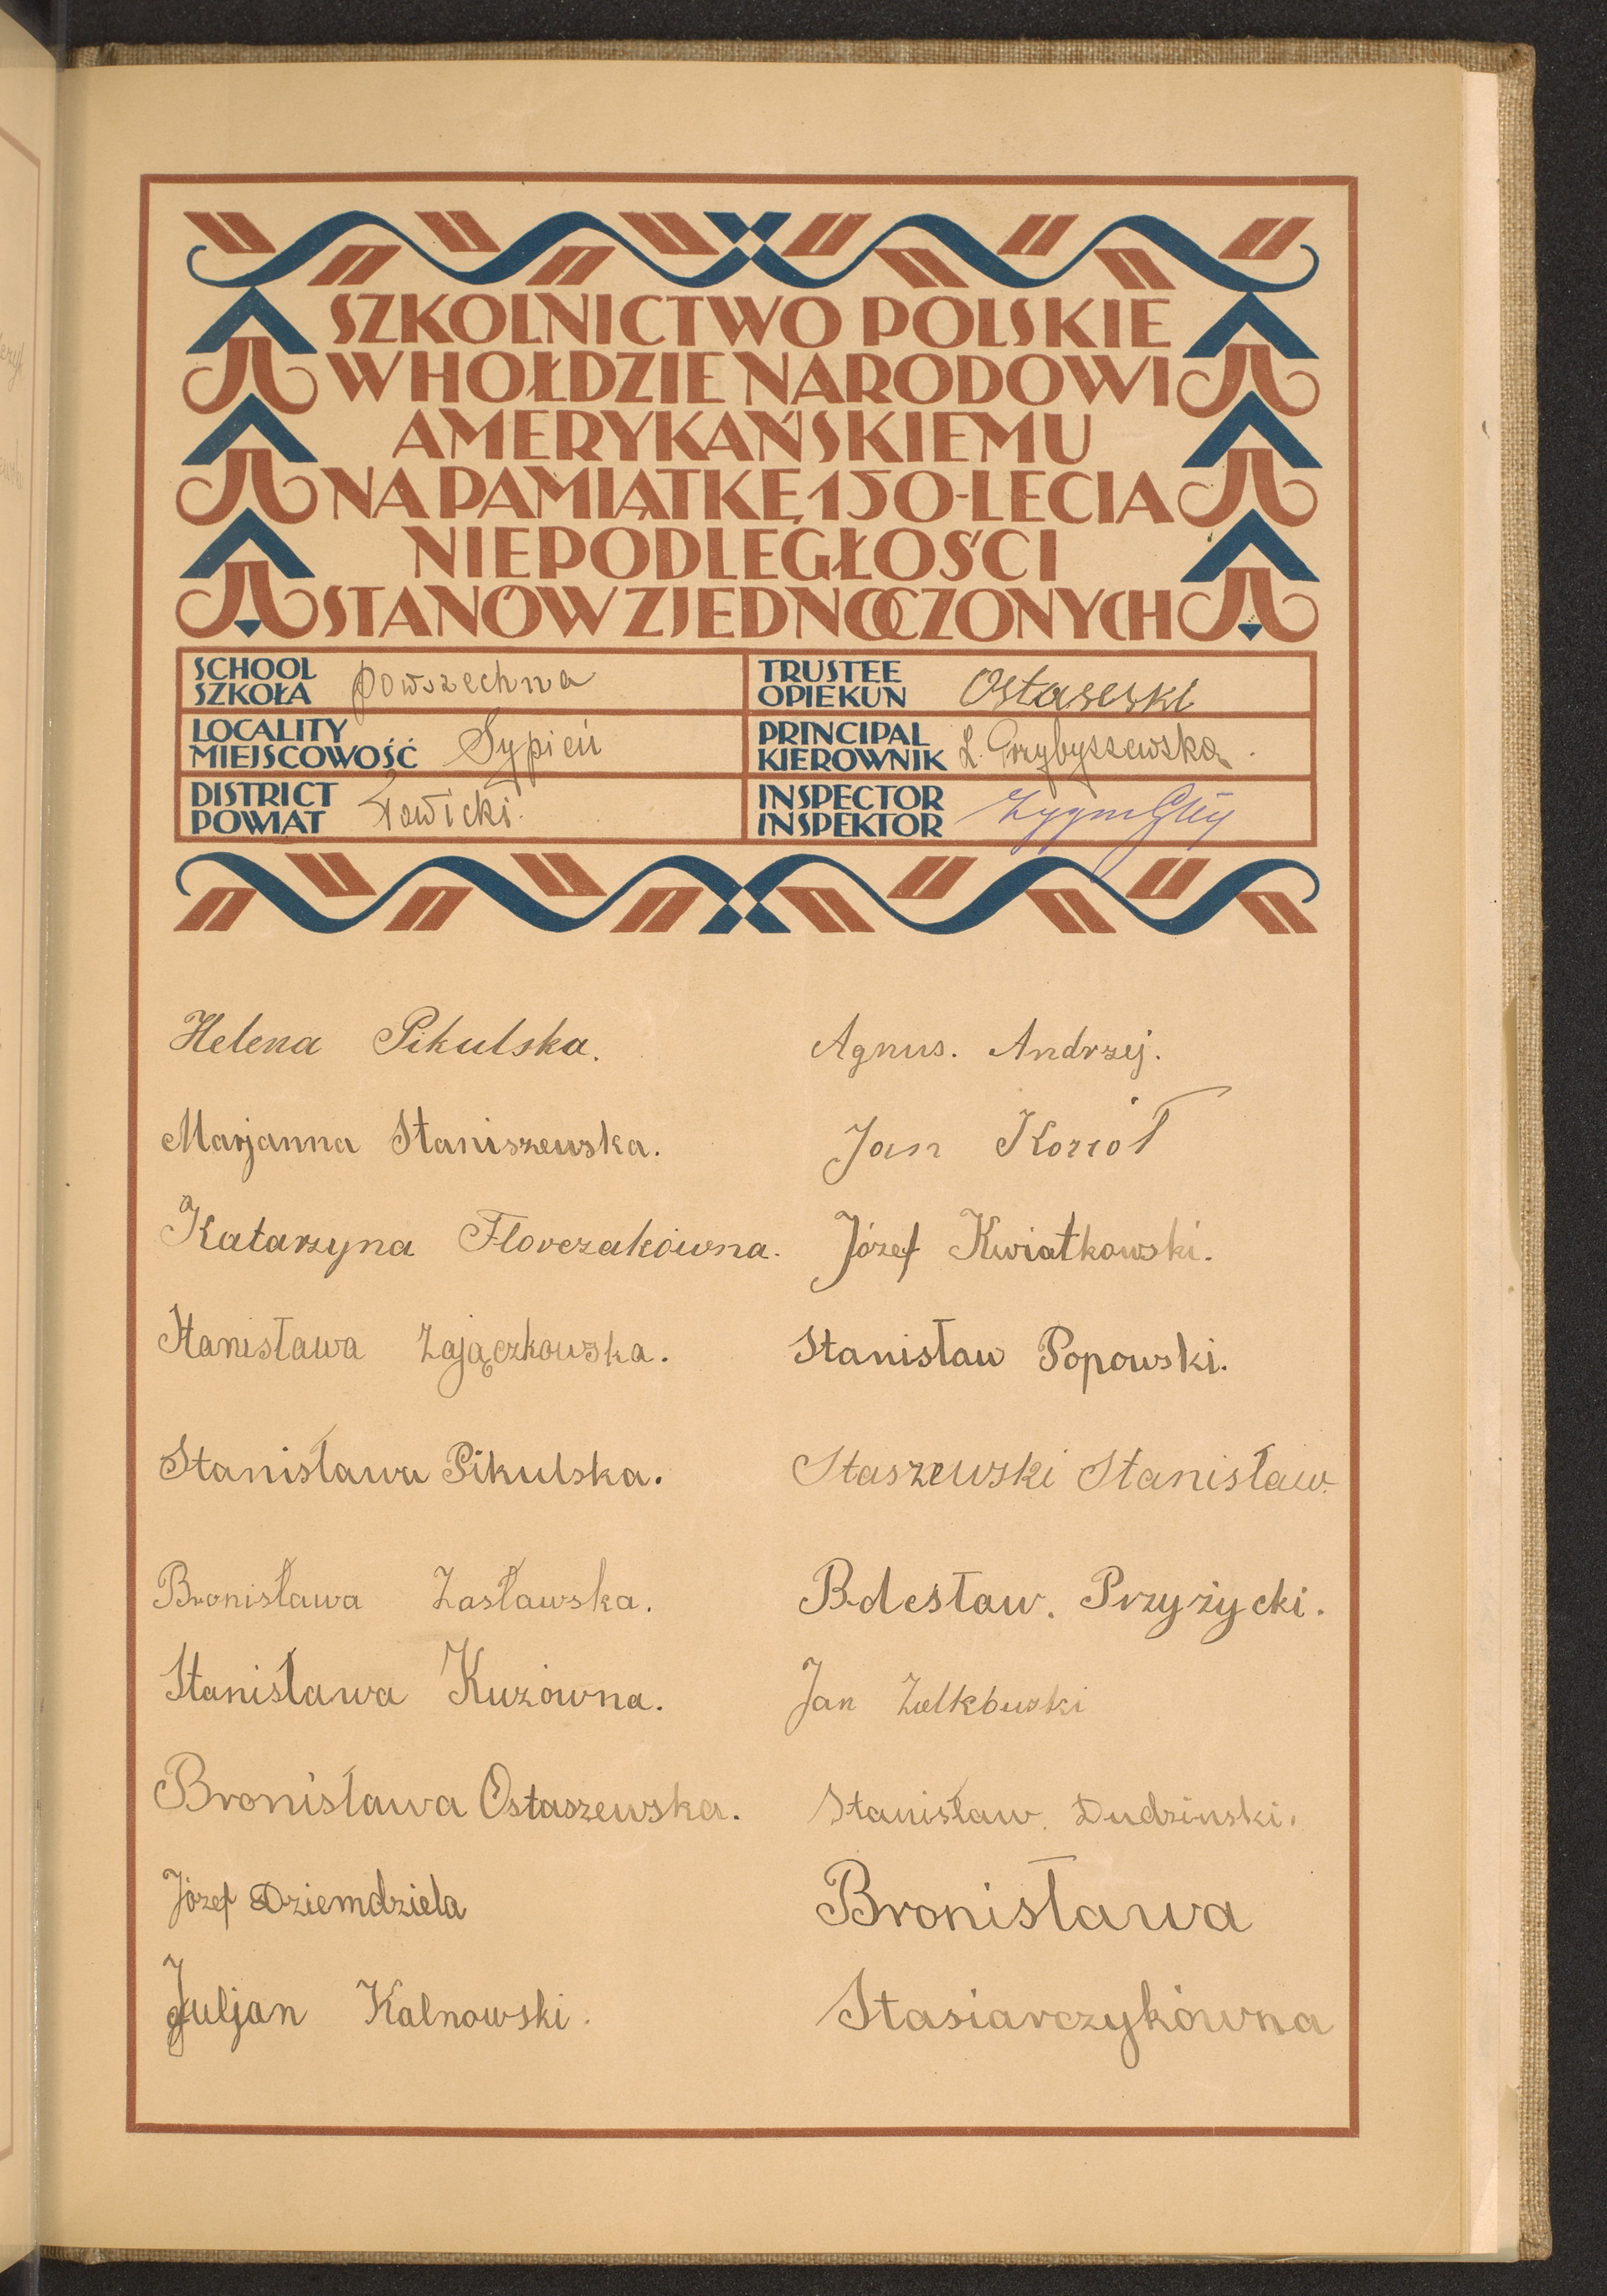 SZKOLNICTWO POLSKIE
W HOŁDZIE NARODOWI
AMERYKAŃSKIEMU
NA PAMIĄTKĘ 150-LECIA
NIEPODLEGŁOŚCI
STANÓW ZJEDNOCZONYCH
SCHOOL
SZKOŁA powszechna
TRUSTEE
OPIEKUN
LOCALITY
MIEJSCOWOŚĆ Sypień
PRINCIPAL
KIEROWNIK L. Przybyszewska.
DISTRICT
POWIAT Łowicki.
INSPECTOR
INSPEKTOR
Helena Pikulska.
Marjanna Staniszewska.
Katarzyna Florczakówna.
Stanisława Zajączkowska.
Stanisława Pikulska.
Bronisława Zasławska.
Stanisława Kuzówna.
Bronisława Ostaszewska.
Józef Dziemdziela
Juljan Kalnowski.
Agnus. Andrzej.
Jan Kozioł
Józef Kwiatkowski.
Stanisław Popowski.
Staszewski Stanisław.
Bolesław. Przyżycki.
Jan
Stanisław. Dudzinski.
Bronisława
Stasiarczykówna